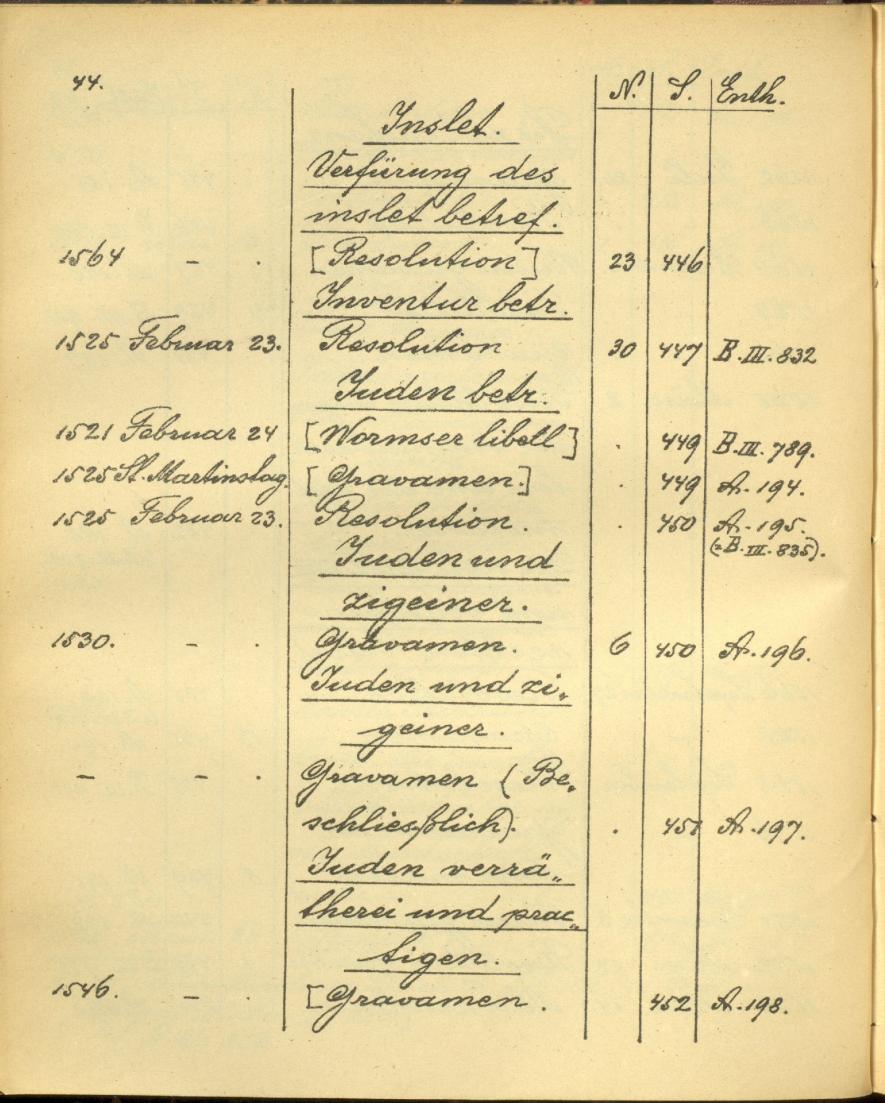 44.
N. S. Enth.
Inslet.
Verfürung des
inslet betref.
1564 - . [Resolution] 23 446
Inventur betr.
1525 Februar 23. Resolution 30 447 B.III.832
Juden betr.
1521 Februar 24 [Wormser libell] . 449 B.III.789.
1525 St. Martinstag. [Gravamen.] . 449 A.194.
1525 Februar 23. Resolution. . 450 A.195.
(=B.III.835).
Juden und
zigeiner.
1530. - . Gravamen. 6 450 A.196.
Juden und zi„
geiner.
- - . Gravamen (Be„
schliesßlich). . 451 A.197.
Juden verrä„
therei und prac„
tigen.
1546. - [Gravamen. 452 A.198.